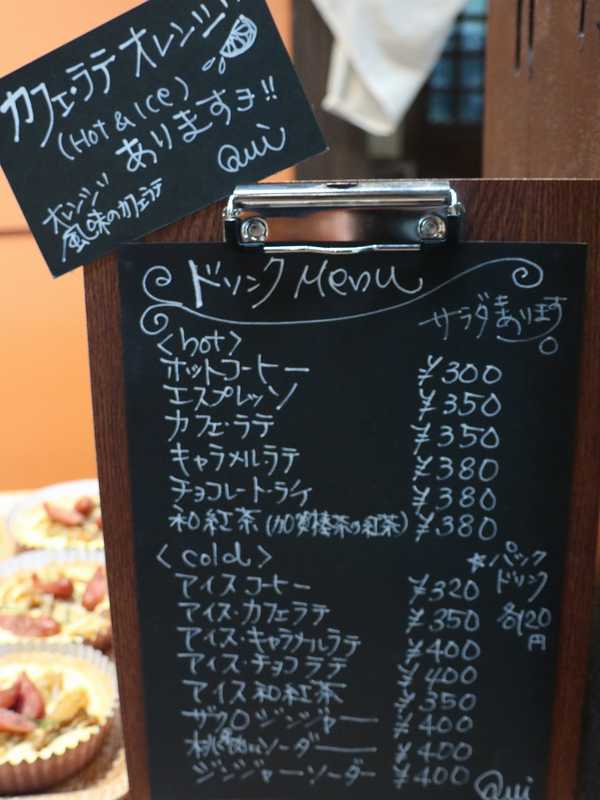 カフェ・ラテオレンジ
(Hot & Ice)
ありますヨ!!
オレンジ
風味のカフェラテ
Qui
ドリンク Menu
サラダもあります。
<hot>
ホットコーヒー ¥300
エスプレッソ ¥350
カフェ・ラテ ¥350
キャラメル・ラテ ¥380
チョコレート・ラテ ¥380
和紅茶 (加賀棒茶の紅茶) ¥380
<cold>
アイスコーヒー ¥320
アイス・カフェラテ ¥350
アイス・キャラメルラテ ¥400
アイス・チョコラテ ¥400
アイス和紅茶 ¥350
ザクロジンジャー ¥400
ソーダー ¥400
ジンジャーソーダー ¥400
☆パック
ドリンク
各120
円
Qui